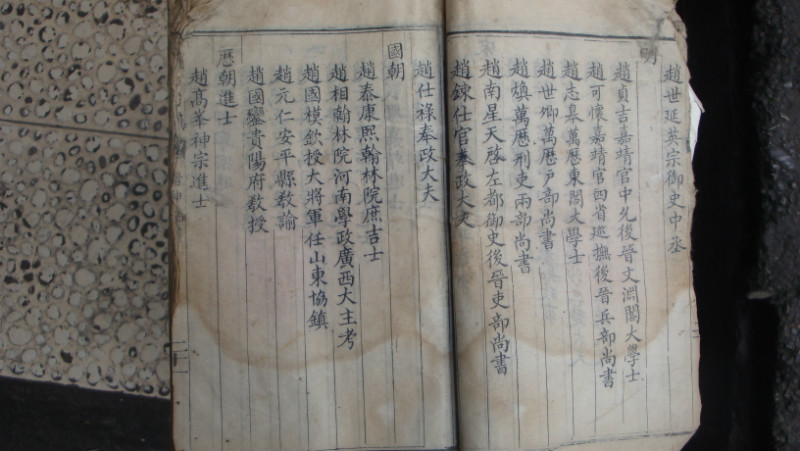 趙世延英宗御史中丞
明
趙貞吉嘉靖官中允後晉文淵閣大學士
趙可懷嘉靖官四省巡撫後晉兵部尚書
趙志皋萬曆東閣大學士
趙世卿萬曆戶部尚書
趙煥萬曆刑吏兩部尚書
趙南星天啓左都御史後晉吏部尚書
趙錬仕官奉政大夫
趙仕祿奉政大夫
國朝
趙泰康熙翰林院庶吉士
趙相翰林院河南學政廣西大主考
趙國模欽授大將軍任山東協鎮
趙元仁安平縣教諭
趙國鑾貴陽府教授
歷朝進士
趙高峯神宗進士